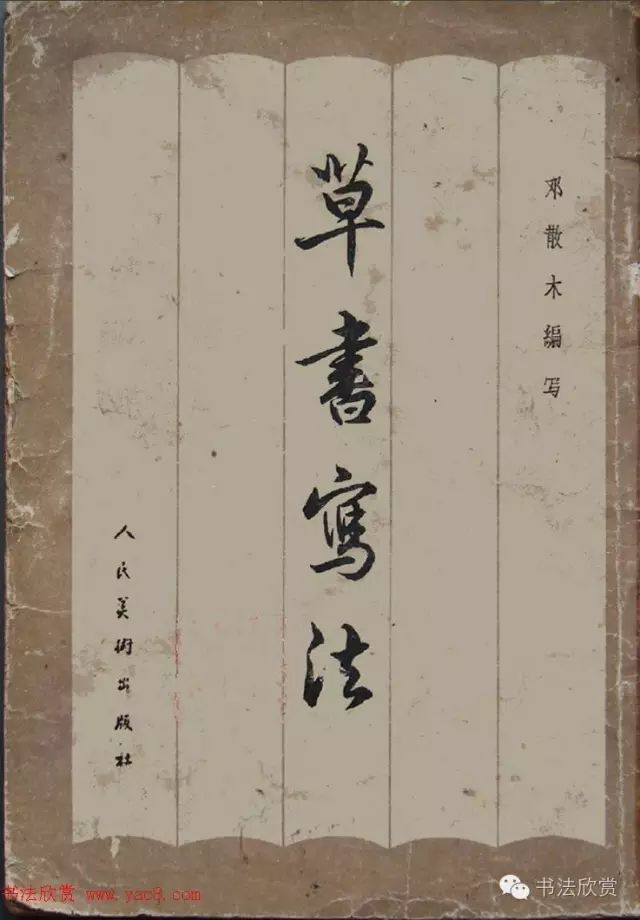 邓散木编写
草書寫法
人民美術出版社
书法欣赏 www.yac8.com
书法欣赏